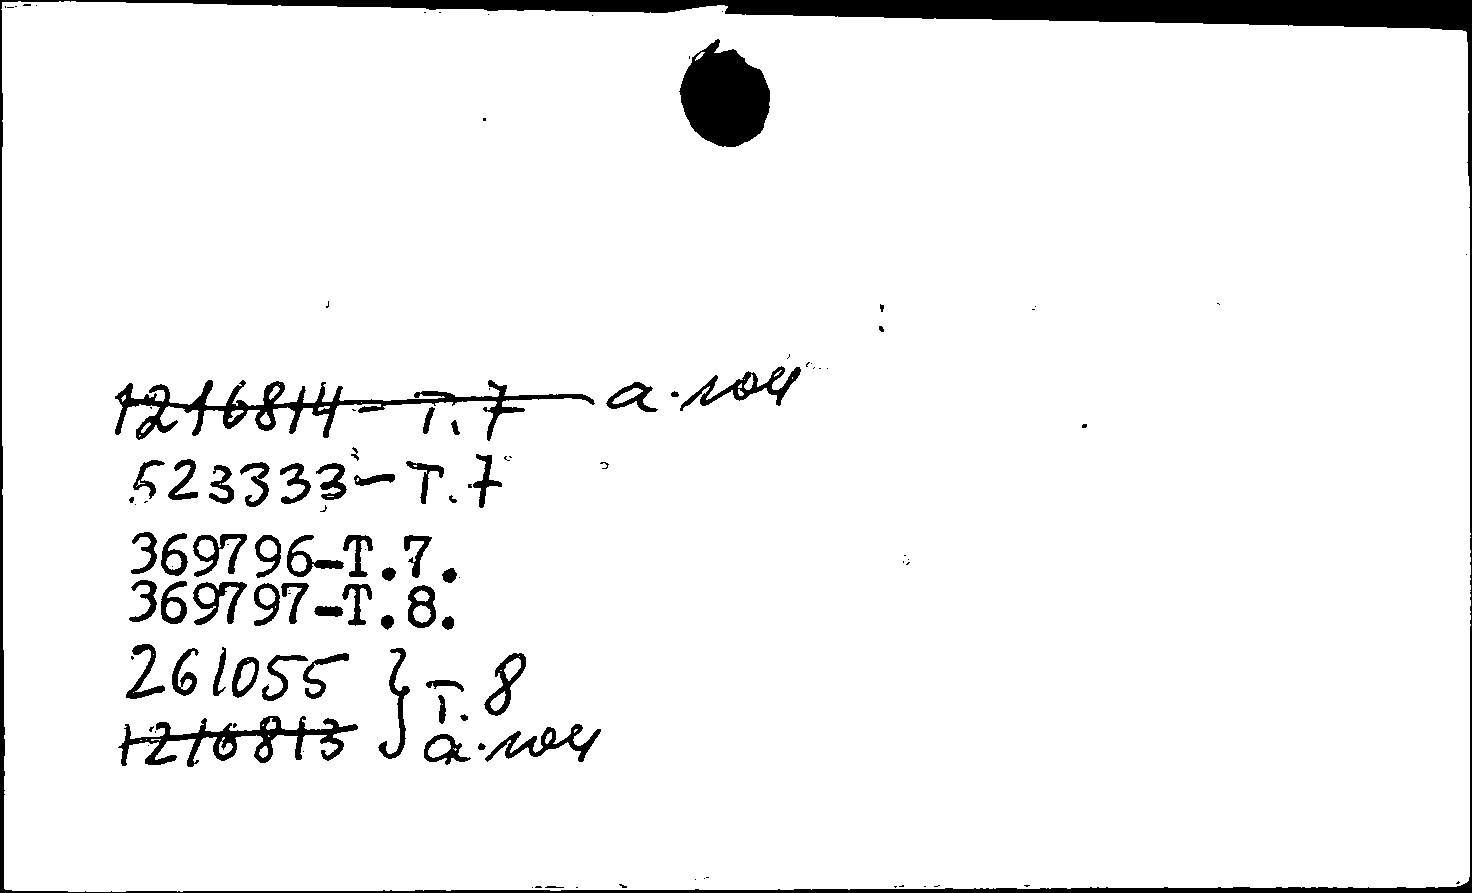 1216814 - Т. 7
523333 - Т. 7
369796-Т.7.
369797-Т.8.
261055 } Т. 8
1216813